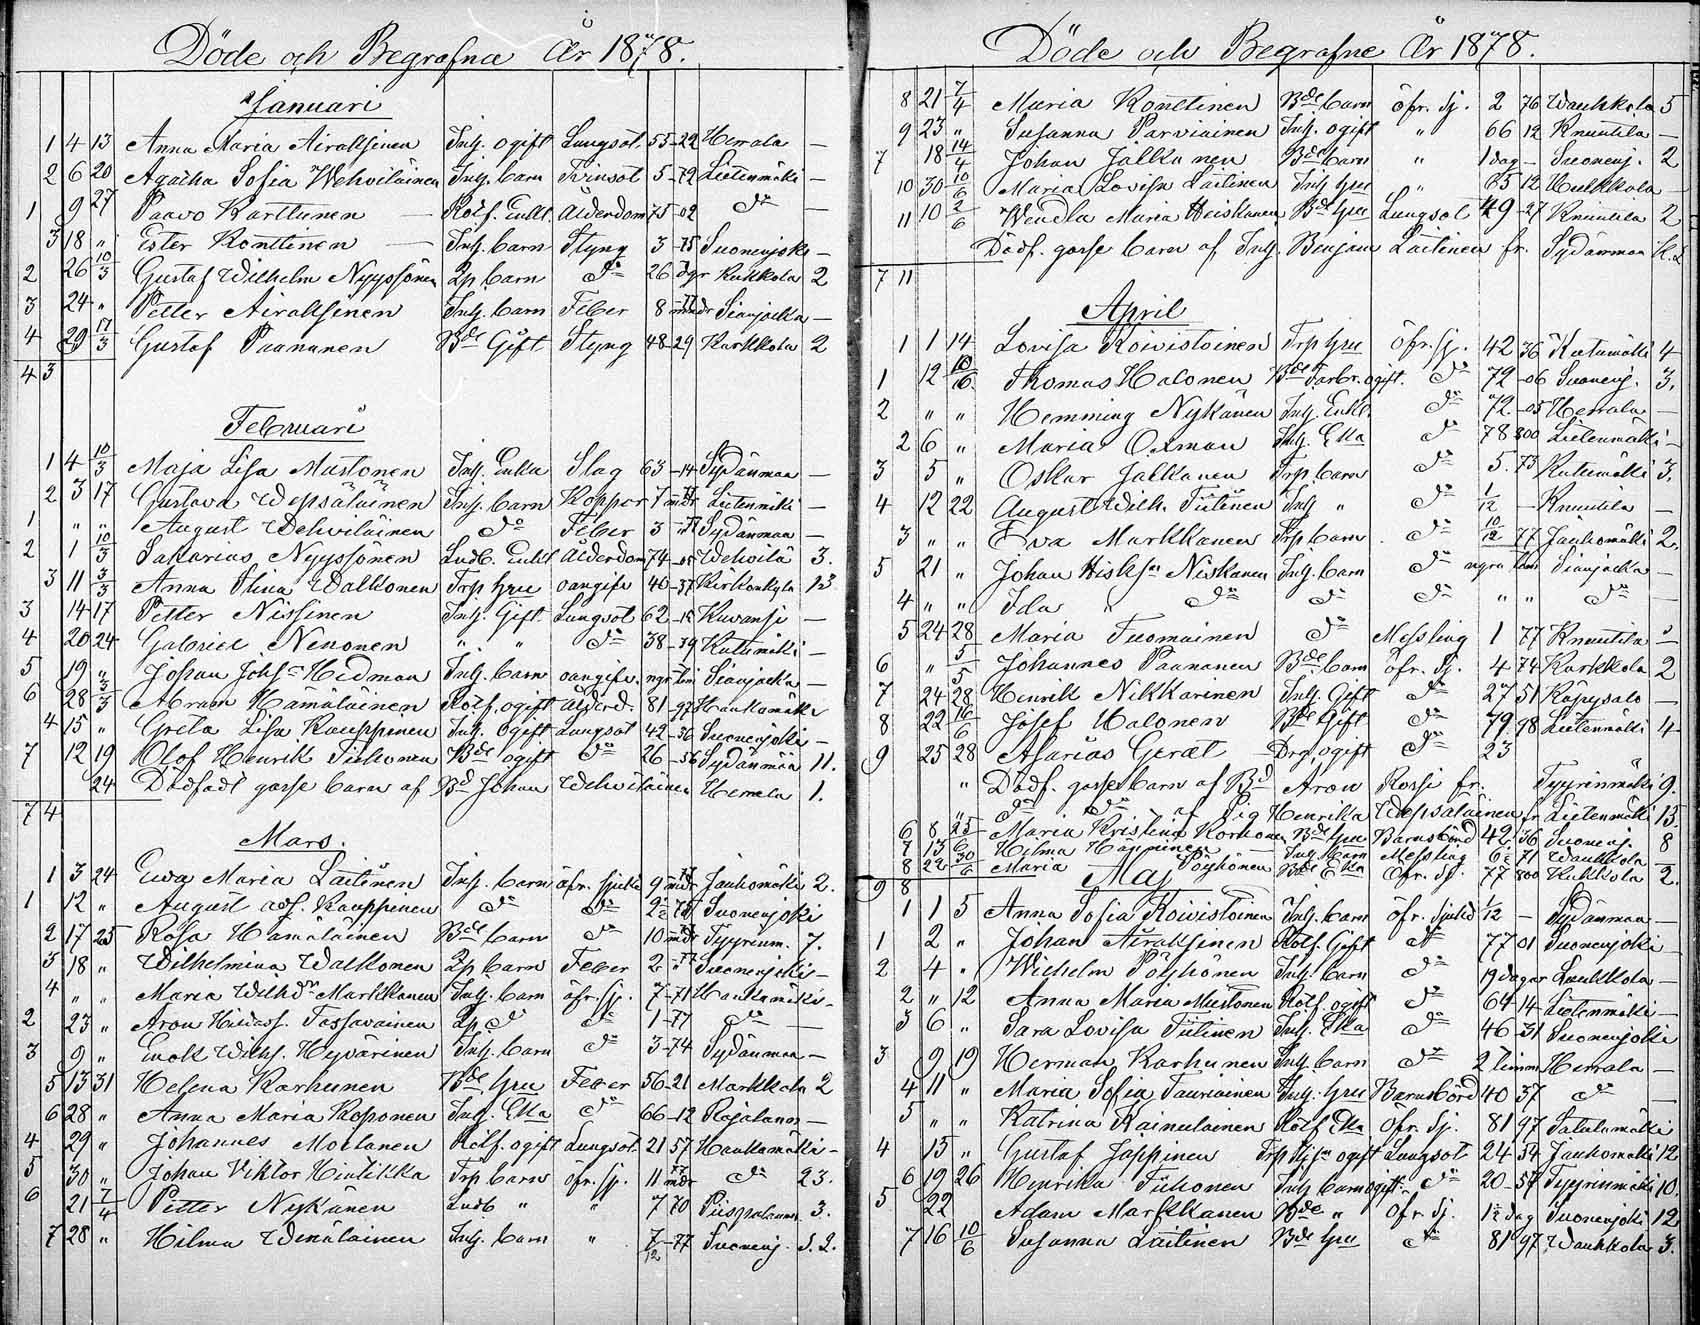 Döde och Begrafna År 1878.
Januari
1 4 13 Anna Maria Airaksinen Inh. ogift Lungsot. 55 -22 Herrala —
2 6 20 Agatha Sofia Wehviläinen Inh. barn Tvinsot 5 -72 Lietenmäki —
1 9 27 Paavo Karttunen — Rotf. Enkl. Ålderdom 75 -02 do —
3 18 " Ester Konttinen — Inh. barn Styng 3 -75 Suonenjoki —
2 26 10/3 Gustaf Wilhelm Nyyssönen Lp. barn do 26 dgr Kukkola 2
3 24 " Petter Airaksinen Inh. barn Feber 8 mdr -77 Sianjalka —
4 29 17/3 Gustaf Paananen Bde Gift Styng 48 -29 Karkkola 2
4 3
Februari
1 4 10/3 Maja Lisa Mustonen Inh. Enka Slag 63 -14 Sydänmaa —
2 3 17 Gustava Wepsäläinen Inh. barn Koppor 7 mdr -77 Lietenmäki —
1 " " August Wehviläinen do Feber 3 Sydänmaa —
2 1 10/3 Sakarias Nyyssönen Ludb. Enkl Ålderdom 74 -05 Wehvilä 3.
3 11 3/3 Anna Stina Walkonen Trp hru oangifv 40 -37 Kirkonkyla 13
3 14 17 Petter Nissinen Inh. Gift Lungsot 62 -15 Kuvansi —
4 20 24 Gabriel Nenonen " " do 38 -39 Kutumäki —
5 19 " Johan Johsn Hedman Inh. barn oangifv. ngr tim Sianjalka —
6 28 3/3 Abram Hämäläinen Rotf. ogift Ålderd. 81 -97 Haukamäki
4 15 " Greta Lisa Kauppinen Inh. Ogift Lungsot 42 -36 Suonenjoki —
7 12 19 Olof Henrik Tiihonen Bde ogift do 26 -56 Sydänmäa 11.
24 Dödfödt gosse barn af Bd Johan Wehviläinen Herrala 1.
7 4
Mars.
1 3 24 Ewa Maria Laitinen Inh. barn öfr. sjukd 9 mdr Jauhomäki 2.
1 12 " August adf. Kauppinen do do 2 1/2 Suonenjoki
2 17 25 Rosa Hämäläinen Bde barn do 10 mdr Tyyrinm. 7.
3 18 " Wilhelmina Walkonen Lp. barn Feber 2 -77 Suonenjoki —
4 " " Maria Wilhdr Markkanen Inh. barn öfr. sj. 7 -71 Haukamäki —
2 23 " Aron Hildasf. Tossavainen Lp. do do 1 -77 do —
3 9 " Enok Wilhf. Hyvärinen Inh. barn do 3 -74 Sydänmaa —
5 13 31 Helena Karhunen Bde hru Feber 56 -21 Markkala 2
6 28 " Anna Maria Koponen Inh. Eka do 66 -12 Rajalanm —
4 29 " Johannes Moilanen Rotf. ogift Lungsot 21 57 Haukamäki —
5 30 " Johan Viktor Hintikka Trp barn öfr. sj. 11 mdr do 23.
6 21 7/4 Petter Nykänen Ludb " " 7 70 Piispalanm 3.
7 28 " Hilma Wenäläinen Inh. barn " 7/12 -77 Suonenj. S. 2.
Döde och Begrafne År 1878.
8 21 7/4 Maria Konttinen Bde barn öfr. sj. 2 76 Wauhkola 5
9 23 " Susanna Parviainen Inh. ogift " 66 12 Knuutila —
7 18 14/4 Johan Jalkanen Bde barn " 1 dag — Suonenj. 2
10 30 10/6 Maria Lovisa Laitinen Inh hru " 65 12 Kukkola —
11 10 2/6 Wendla Maria Heiskanen Bde hru Lungsot 49 -27 Knuutila 2
Dödf. gosse barn af Inh. Benjam Laitinen fr. Sydänmaa
7 11
April
1 1 14 Lovisa Koivistoinen Trp hru öfr. sj. 42 36 Kutumäki 4
1 12 10/6 Thomas Halonen Bde Farbr. ogift. do 72 -06 Suonenj. 3.
2 " " Hemming Nykänen Inh. Enkl. do 72 -05 Herrala —
2 6 " Maria Oxman Inh. Eka do 78 800 Lietenmäki —
3 5 " Oskar Jalkanen Trp. barn do 5. 73 Kutumäki 3.
4 12 22 August Wilh. Tiitinen Inh " do 1/12 — Knuutila —
3 " " Eva Markkanen Trp barn do 10/12 77 Jauhomäki 2.
5 21 " Johan Hiskn Niskanen Inh. barn do ngra tim Sianjalka —
4 " " Ida " do do do " " do —
5 24 28 Maria Tuomainen do Messling 1 77 Knuutila
6 " 5/5 Johannes Paananen Bde barn öfr. sj. 4 74 Karkkola 2
7 24 28 Henrik Nikkarinen Inh. Gift do 27 51 Kopysalo —
8 22 16/6 Josef Halonen Bde Gift do 79 98 Lietenmäki 4
9 25 28 Asarias Gerät Drg, ogift do 23
" Dödf. gosse barn af Bd Aron Rossi fr. Tyyrinmäki 9.
" do do af Pig Henrika Wepsäläinen fr Lietenmäki 15.
6 8 25 Maria Kristina Korhonen Bde hru Barnsbörd 42 36 Suonenj. 8
7 13 6 Hilma Hänninen Inh. barn Messling 6 71 Wauhkola
8 22 30/6 Maria Pöyhönen Bde Eka Öfr. sj. 77 800 Kukkola 2.
9 8
Maj
1 1 5 Anna Sofia Koivistoinen Inh. barn öfr. sjukd 1/12 — Sydänmaa —
1 2 " Johan Airaksinen Rotf. Gift do 77 01 Suonenjoki —
2 4 " Wilhelm Pöyhönen Inh. barn do 19 dagar Luukkola —
2 " 12 Anna Maria Mustonen Rotf. ogift do 64 -14 Lietenmäki —
3 6 " Sara Lovisa Tiitinen Inh. Eka do 46 -31 Suonenjoki
3 9 19 Herman Karhunen Inh. barn do 2 timm Herrala —
4 11 " Maria Sofia Tauriainen Inh. hru Barnsbörd 40 37 do —
5 " " Katrina Rainulainen Rotf Eka Öfr. sj. 81 97 Salulamäki
4 13 " Gustaf Jäppinen Trp ogift Lungsot 24 54 Jauhomäki 12
6 19 26 Henrika Tiihonen Inh barn ogift do 20 -57 Tyyrinmäki 10.
5 22 Adam Markkanen Bde " Öfr. sj. 1 1/2 dag Suonenjoki 12
7 16 10/6 Susanna Laitinen Bde hru do 81 97 Wauhkola 3.